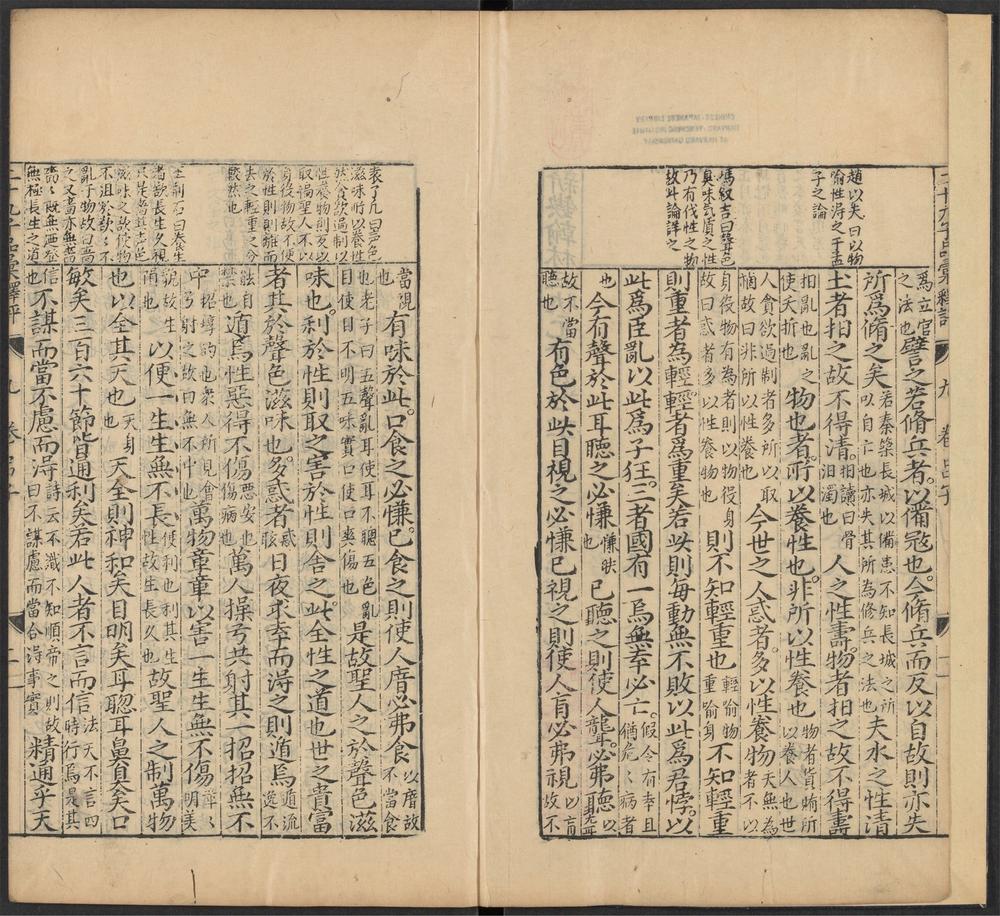 趙以夫曰以物
喻性得之于孟
子之論
馮叔吉曰聲色
臭味氣質之性
乃有伐性之物
故此論詳之
為立官之法也譬之若脩兵者以備寇也今脩兵而反以自故則亦失
所為脩之矣若秦築長城以備患不知長城之所以自亡也亦失其所為修兵之法也夫水之性清
土者抇之故不得清抇讀曰骨汨濁也人之性壽物者抇之故不得壽
抇亂也亂之使夭折也物也者所以養性也非所以性養也物者貨賄所以養人也世
人貪欲過制者多所以取惱故曰非所以性養也今世之人惑者多以性養物夫無為者不以
身役物有為者則以物役身故曰惑者多以性養物也則不知輕重也輕喻物重喻身不知輕重
則重者為輕輕者為重矣若此則每動無不敗以此為君悖以
此為臣亂以此為子狂三者國有一焉無幸必亡假令有幸且猶危危病者
也今有聲於此耳聽之必慊慊快也已聽之則使人聾必弗聽以聾
故不當聽也有色於此目視之必慊已視之則使人盲必弗視以盲故不
袁了凡曰聲色
滋味所以養性
然貪欲過制以
性養物則反以
取禍聖人不以
身役物故不便
於性則則離而
去之輕重之分
較然也
王荊石曰養生
者欲長生久視
只是嗇其聲色
滋味之欲使物
不沮
亂于物故曰嗇
之又嗇亦無嗇
嗇嗇既無廼至
無極長生之道
當視也有味於此口食之必慊已食之則使人瘖必弗食以瘖故不當食
也老子曰五聲亂耳使耳不聰五色亂目使目不明五味實口使口爽傷也是故聖人之於聲色滋
味也利於性則取之害於性則舍之此全性之道也世之貴富
者其於聲色滋味也多惑者惑眩日夜求幸而得之則遁焉遁流逸不
能自禁也遁焉性惡得不傷惡安也傷病也萬人操弓共射其一招招無不
中招埻的也眾人所見會弓射之故曰無不中也萬物章章以害一生生無不傷章章明美
貌故生隕也以便一生生無不長便利也利其生性故生長久也故聖人之制萬物
也以全其天也天身也天全則神和矣目明矣耳聰耳鼻臭矣口
敏矣三百六十節皆通利矣若此人者不言而信法天不言四時行焉是其
信也不謀而當不慮而得詩云不識不知順帝之則故曰不謀慮而當合得事實精通乎天